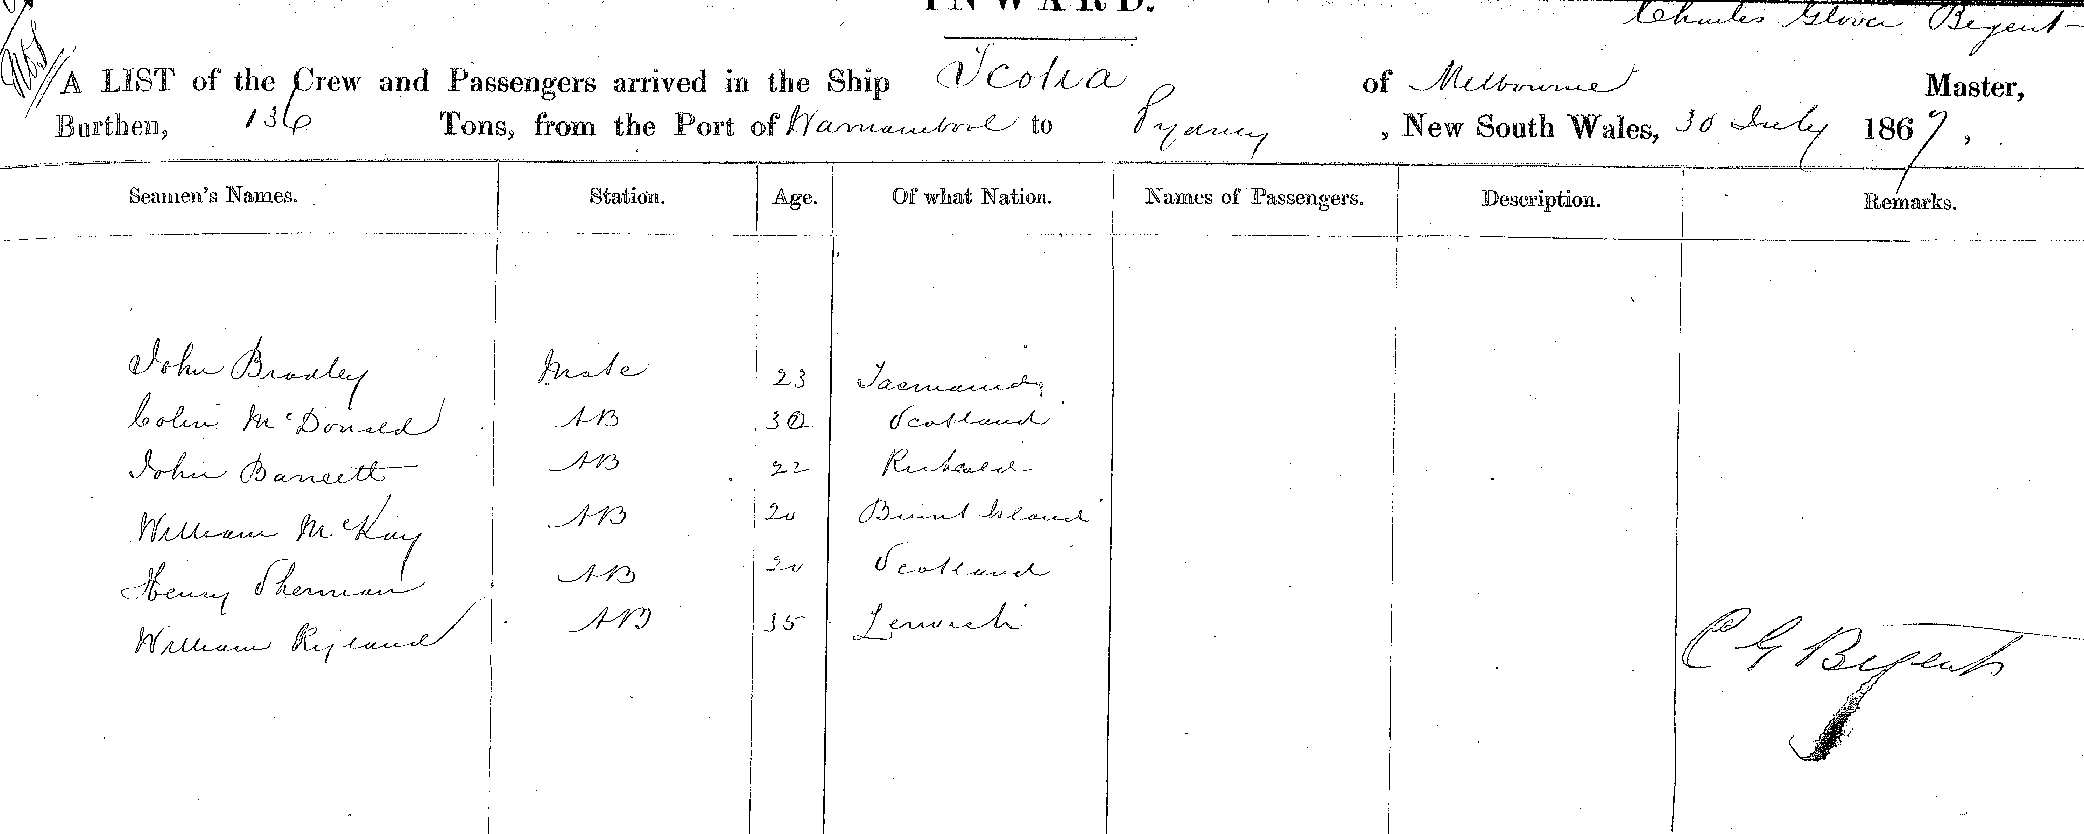 INWARD.
Charles Glover Begent
A LIST of the Crew and Passengers arrived in the Ship Scotia of Melbourne Master,
Burthen, 136 Tons, from the Port of Warnambool to Sydney, New South Wales, 30 July 1867,
Seamen's Names. Station. Age. Of what Nation. Names of Passengers. Description. Remarks.
John Bradley Mate 23 Tasmania
Colin McDonald AB 30 Scotland
John Barnett AB 22
William McKay AB 20 Burnt Island
Henry Sherman AB 20 Scotland
William Ryland AB 35 Lerwick
C G Begent